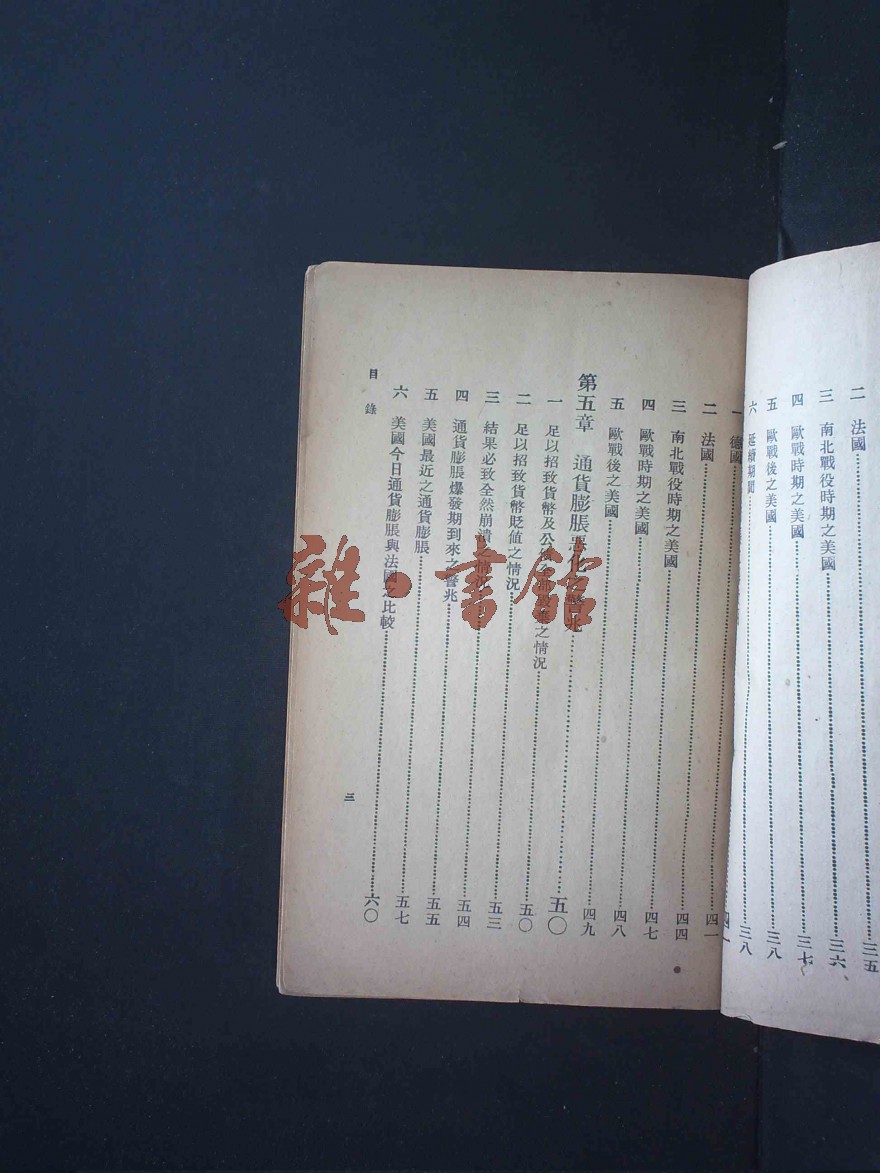 二 法國……三五
三 南北戰役時期之美國……三六
四 歐戰時期之美國……三七
五 歐戰後之美國……三八
六 延續期間……三八
一 德國……四一
二 法國……四四
三 南北戰役時期之美國……四七
四 歐戰時期之美國……四八
五 歐戰後之美國……四九
第五章 通貨膨脹惡化之警兆……五〇
一 足以招致貨幣及公債全部之情況……五〇
二 足以招致貨幣貶值之情況……五三
三 結果必致全然崩潰之情況……五四
四 通貨膨脹爆發期到來之警兆……五五
五 美國最近之通貨膨脹……五七
六 美國今日通貨膨脹與法國之比較……六〇
目錄
三
雜·書館